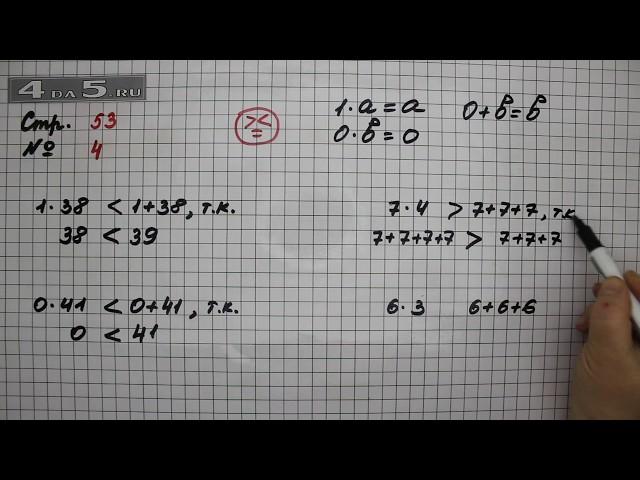 4DA5.RU
Стр. 53
№ 4
> < =
1·a=a
0·b=0
0+b=b
1·38 < 1+38, т.к.
38 < 39
7·4 > 7+7+7, т.к
7+7+7+7 > 7+7+7
0·41 < 0+41, т.к.
0 < 41
6·3 6+6+6